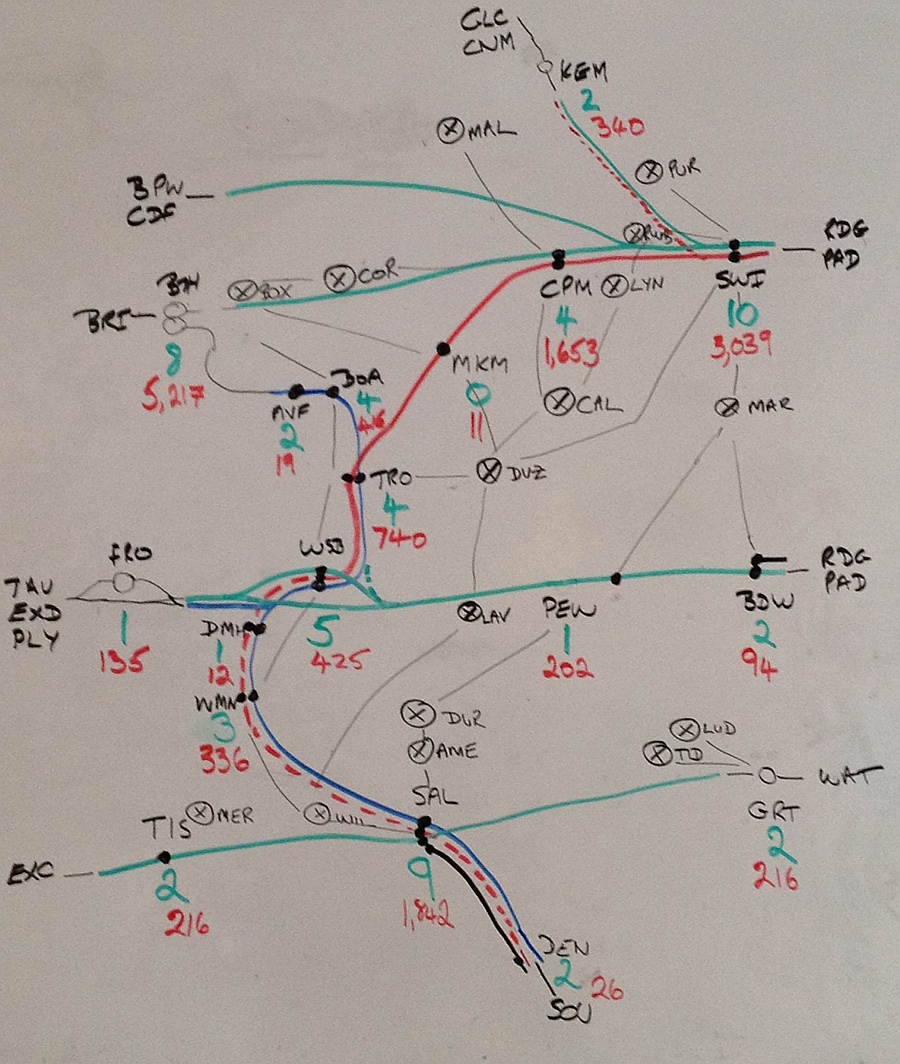 GLC
CNM
KEM
2
340
MAL
PUR
BPW
CDF
RWB
RDG
PAD
BOX
COR
CPM
4
1,653
LYN
SWI
10
3,039
BTH
BRI
8
5,217
MKM
0
11
BOA
4
46
AVF
2
19
CAL
MAR
TRO
4
740
DVZ
WSB
5
425
FRO
1
135
TAV
EXD
PLY
DMH
1
12
LAV
PEW
1
202
RDG
PAD
BDW
2
94
WMN
3
336
DUR
AME
LUD
TID
WAT
GRT
2
216
SAL
9
1,842
TIS
2
216
MER
WIL
EXC
DEN
2 26
SOU